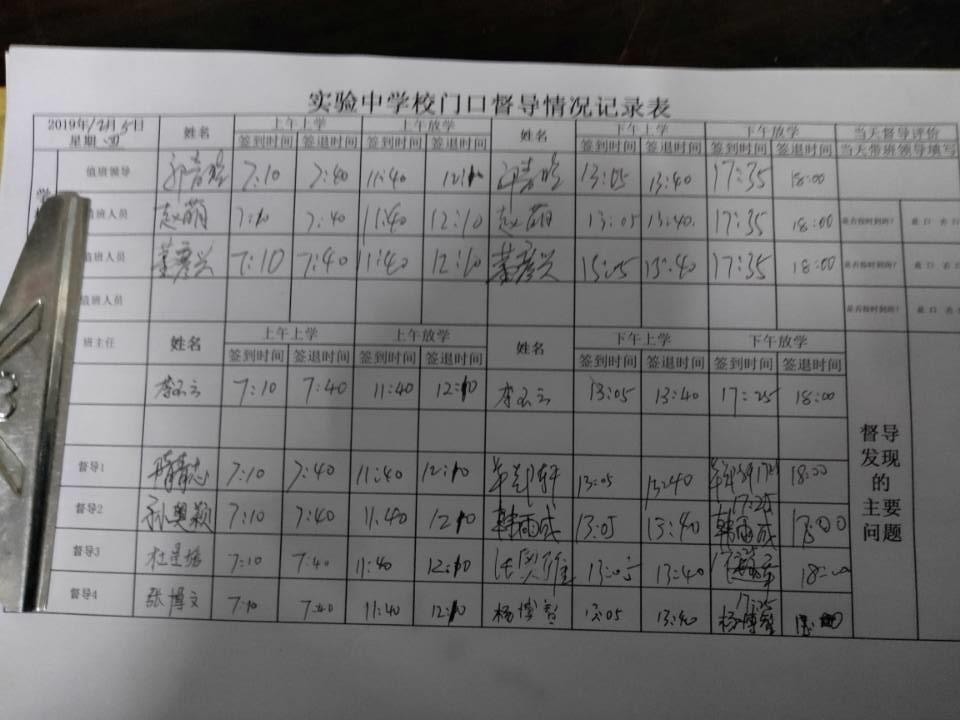 实验中学校门口督导情况记录表
2019年12月5日 星期四 姓名 上午上学 上午放学 姓名 下午上学 下午放学 当天督导评价
签到时间 签退时间 签到时间 签退时间 签到时间 签退时间 签到时间 签退时间 当天带班领导填写
学
值班领导 7:10 7:40 11:40 12:10 13:05 13:40 17:35 18:00
值班人员 赵萌 7:10 7:40 11:40 12:10 赵萌 13:05 13:40 17:35 18:00 是否按时到岗? 是 口 否 口
值班人员 董彦兴 7:10 7:40 11:40 12:10 董彦兴 13:05 13:40 17:35 18:00 是否按时到岗? 是 口 否 口
值班人员 是否按时到岗? 是 口 否 口
班主任 姓名 上午上学 上午放学 姓名 下午上学 下午放学
签到时间 签退时间 签到时间 签退时间 签到时间 签退时间 签到时间 签退时间
李玉云 7:10 7:40 11:40 12:10 李玉云 13:05 13:40 17:25 18:00
督导发现的主要问题
督导1 7:10 7:40 11:40 12:10 13:05 13:40 18:00
督导2 孙奥颖 7:10 7:40 11:40 12:10 韩雨成 13:05 13:40 17:25 韩雨成 18:00
督导3 7:10 7:40 11:40 12:10 13:05 13:40 18:00
督导4 张博文 7:10 7:40 11:40 12:10 杨博智 13:05 13:40 17:25 杨博智